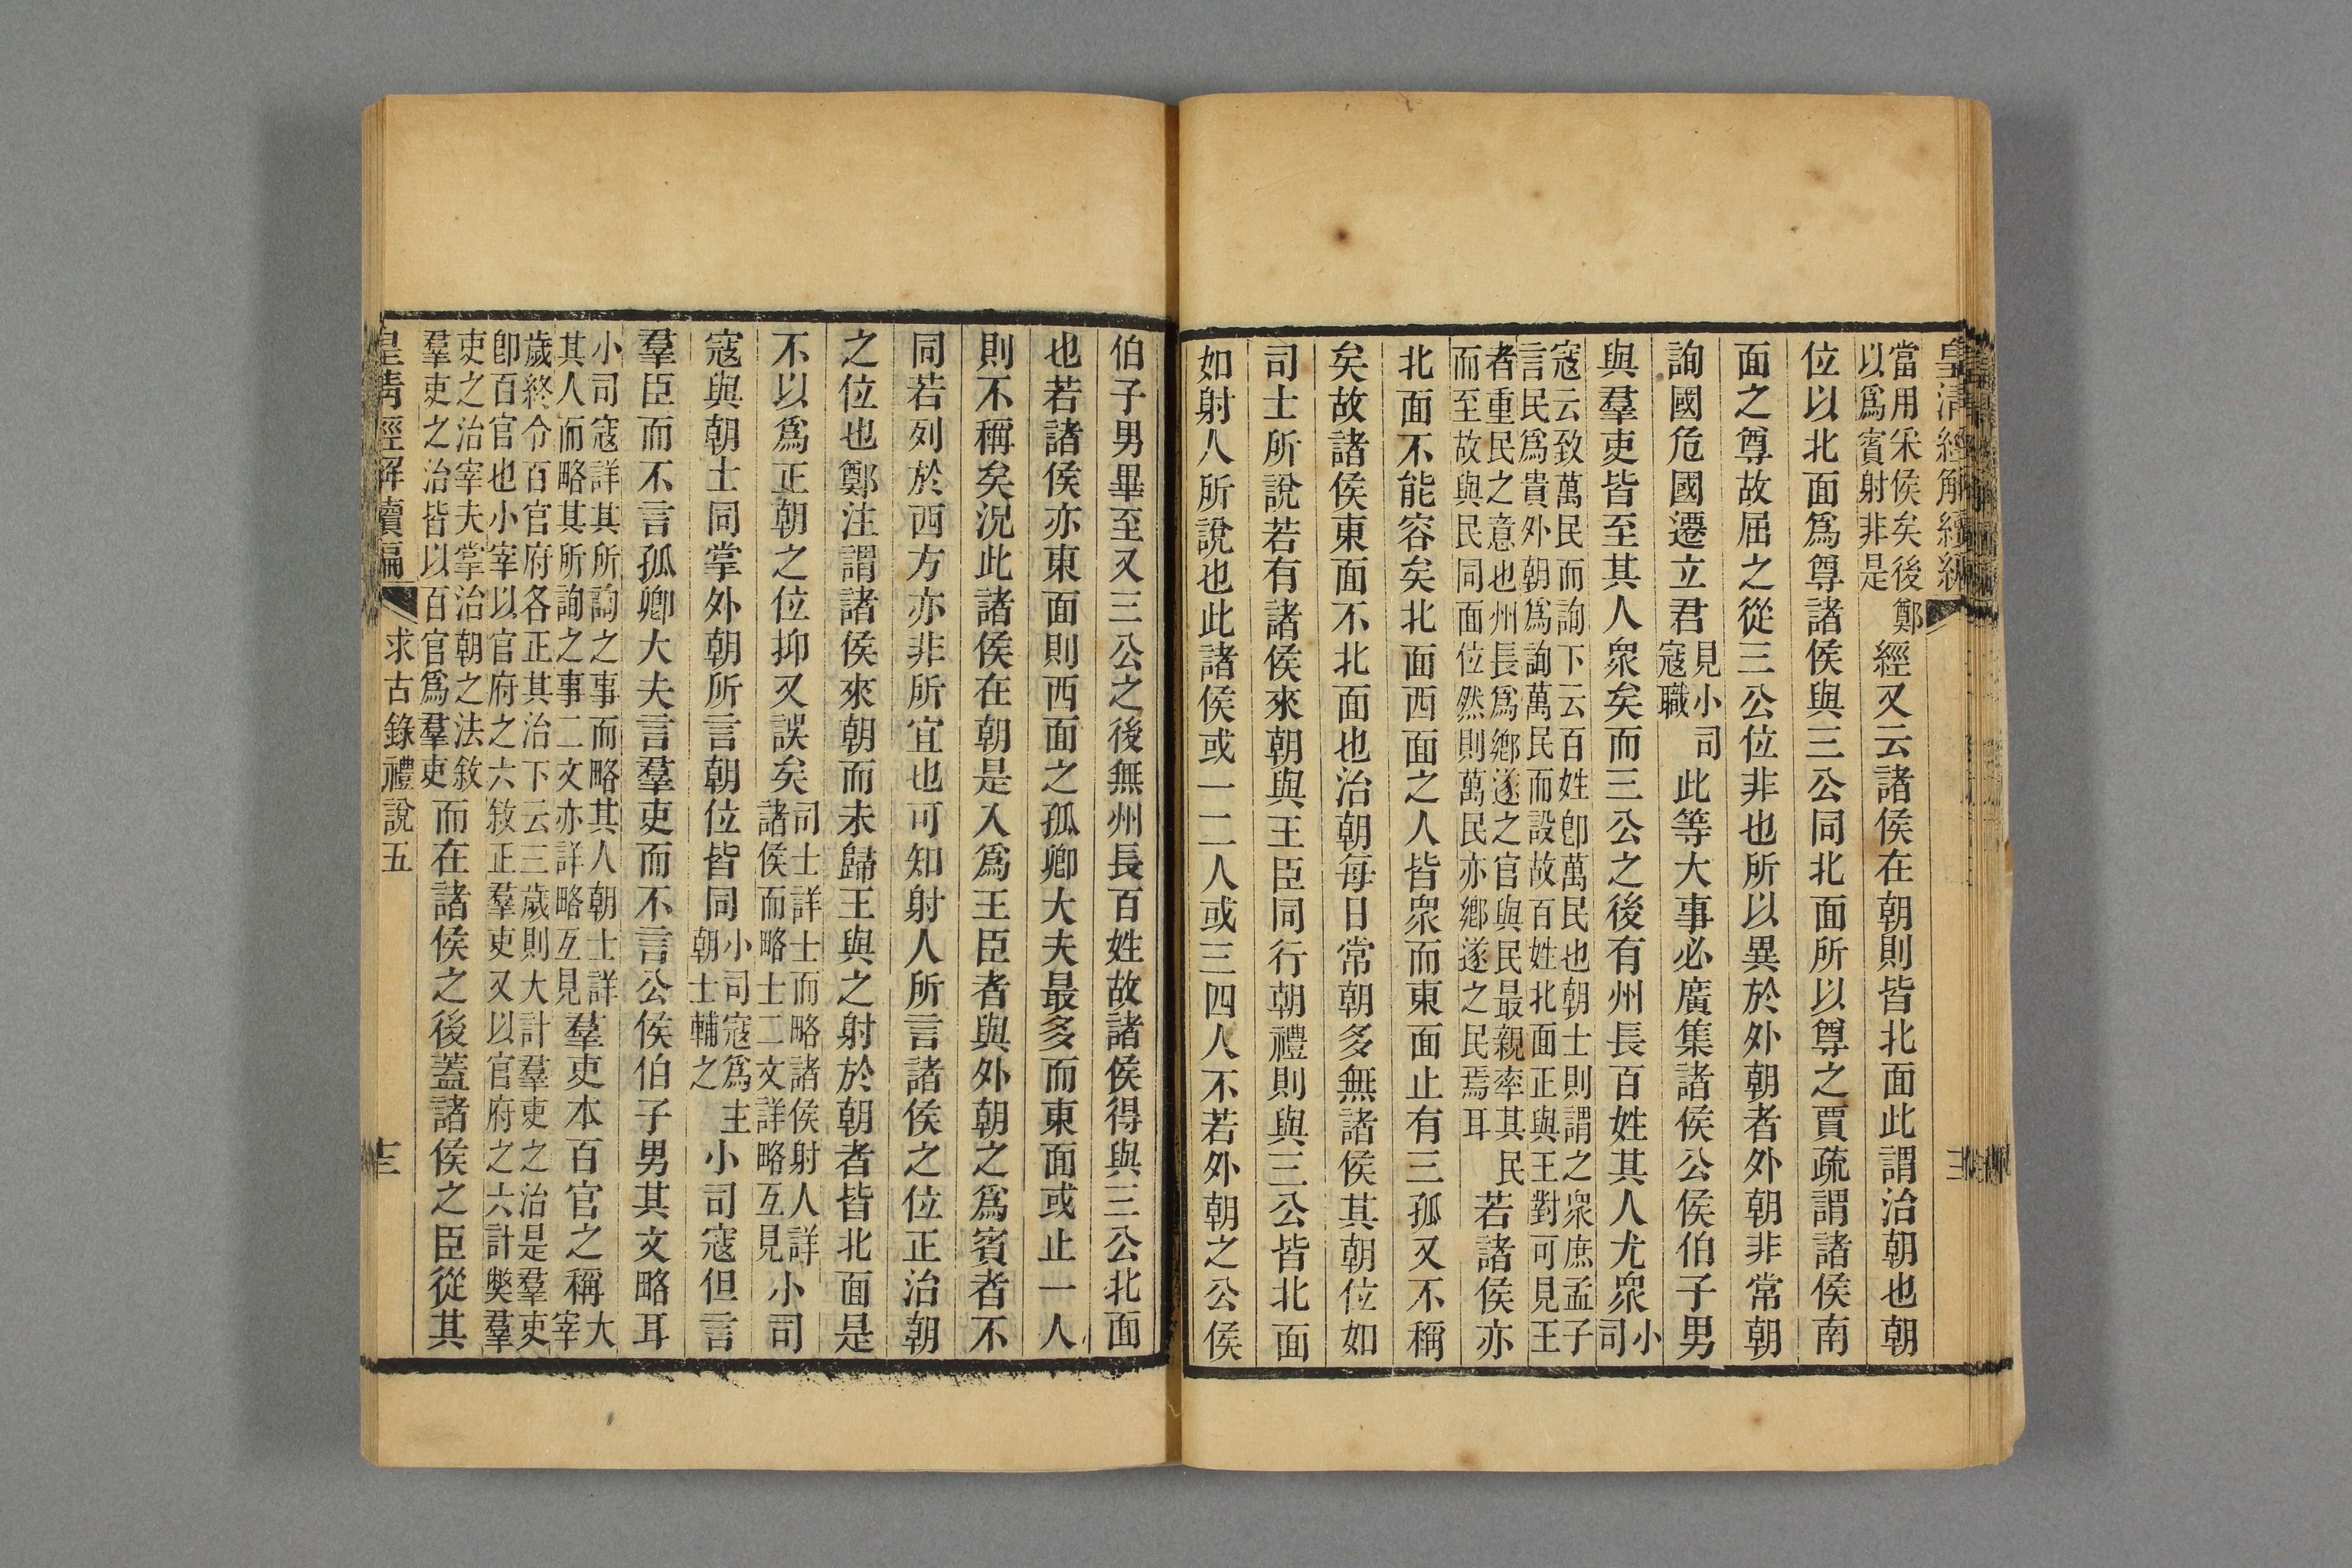 皇清經解續編
當用采侯矣後鄭以爲賓射非是經又云諸侯在朝則皆北面此謂治朝也朝
位以北面爲尊諸侯與三公同北面所以尊之賈疏謂諸侯南
面之尊故屈之從三公位非也所以異於外朝者外朝非常朝
詢國危國遷立君見小司寇職此等大事必廣集諸侯公侯伯子男
與羣吏皆至其人衆矣而三公之後有州長百姓其人尤衆小司
寇云致萬民而詢下云百姓卽萬民也朝士則謂之衆庶孟子言民爲貴外朝爲詢萬民而設故百姓北面正與王對可見王
者重民之意也州長爲鄉遂之官與民最親率其民而至故與民同面位然則萬民亦鄉遂之民焉耳若諸侯亦
北面不能容矣北面西面之人皆衆而東面止有三孤又不稱
矣故諸侯東面不北面也治朝每日常朝多無諸侯其朝位如
司士所說若有諸侯來朝與王臣同行朝禮則與三公皆北面
如射人所說也此諸侯或一二人或三四人不若外朝之公侯
伯子男畢至又三公之後無州長百姓故諸侯得與三公北面
也若諸侯亦東面則西面之孤卿大夫最多而東面或止一人
則不稱矣況此諸侯在朝是入爲王臣者與外朝之爲賓者不
同若列於西方亦非所宜也可知射人所言諸侯之位正治朝
之位也鄭注謂諸侯來朝而未歸王與之射於朝者皆北面是
不以爲正朝之位抑又誤矣司士詳士而略諸侯射人詳諸侯而略士二文詳略互見小司
寇與朝士同掌外朝所言朝位皆同小司寇爲主朝士輔之小司寇但言
羣臣而不言孤卿大夫言羣吏而不言公侯伯子男其文略耳
小司寇詳其所詢之事而略其人朝士詳其人而略其所詢之事二文亦詳略互見羣吏本百官之稱大宰
歲終令百官府各正其治下云三歲則大計羣吏之治是羣吏卽百官也小宰以官府之六敘正羣吏又以官府之六計獘羣
吏之治宰夫掌治朝之法敘羣吏之治皆以百官爲羣吏而在諸侯之後蓋諸侯之臣從其
皇清經解續編 求古錄禮說五 十三